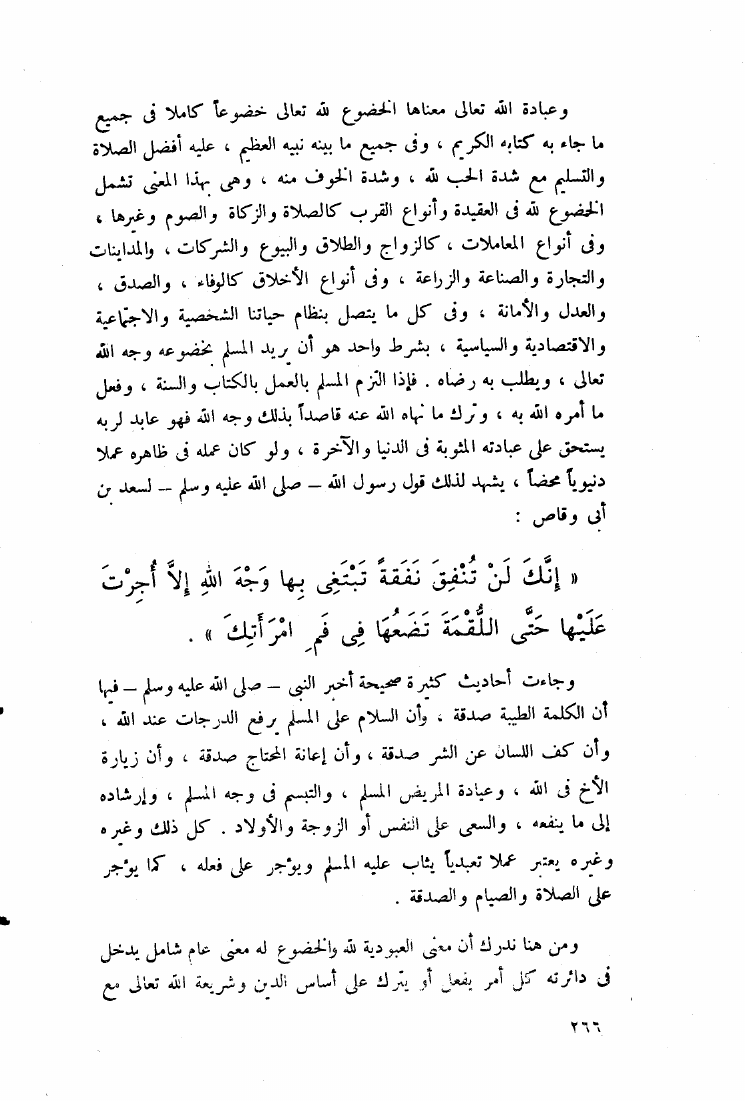 وعبادة الله تعالى معناها الخضوع لله تعالى خضوعاً كاملا فى جميع
ما جاء به كتابه الكريم ، وفى جميع ما بينه نبيه العظيم ، عليه أفضل الصلاة
والتسليم مع شدة الحب لله ، وشدة الخوف منه ، وهى بهذا المعنى تشمل
الخضوع لله فى العقيدة وأنواع القرب كالصلاة والزكاة والصوم وغيرها ،
وفى أنواع المعاملات ، كالزواج والطلاق والبيوع والشركات ، والمداينات
والتجارة والصناعة والزراعة ، وفى أنواع الأخلاق كالوفاء ، والصدق ،
والعدل والأمانة ، وفى كل ما يتصل بنظام حياتنا الشخصية والاجتماعية
والاقتصادية والسياسية ، بشرط واحد هو أن يريد المسلم بخضوعه وجه الله
تعالى ، ويطلب به رضاه . فإذا التزم المسلم بالعمل بالكتاب والسنة ، وفعل
ما أمره الله به ، وترك ما نهاه الله عنه قاصداً بذلك وجه الله فهو عابد لربه
يستحق على عبادته المثوبة فى الدنيا والآخرة ، ولو كان عمله فى ظاهره عملا
دنيوياً محضاً ، يشهد لذلك قول رسول الله – صلى الله عليه وسلم – لسعد بن
أبى وقاص :
« إِنَّكَ لَنْ تُنْفِقَ نَفَقَةً تَبْتَغِى بِها وَجْهَ اللهِ إِلاَّ أُجِرْتَ
عَلَيْها حَتَّى اللُّقْمَةَ تَضَعُهَا فِى فَمِ امْرَأَتِكَ » .
وجاءت أحاديث كثيرة صحيحة أخبر النبى – صلى الله عليه وسلم – فيها
أن الكلمة الطيبة صدقة ، وأن السلام على المسلم يرفع الدرجات عند الله ،
وأن كف اللسان عن الشر صدقة ، وأن إعانة المحتاج صدقة ، وأن زيارة
الأخ فى الله ، وعيادة المريض المسلم ، والتبسم فى وجه المسلم ، وإرشاده
إلى ما ينفعه ، والسعى على النفس أو الزوجة والأولاد . كل ذلك وغيره
وغيره يعتبر عملا تعبدياً يثاب عليه المسلم ويؤجر على فعله ، كما يؤجر
على الصلاة والصيام والصدقة .
ومن هنا ندرك أن معنى العبودية لله والخضوع له معنى عام شامل يدخل
فى دائرته كل أمر يفعل أو يترك على أساس الدين وشريعة الله تعالى مع
٢٦٦